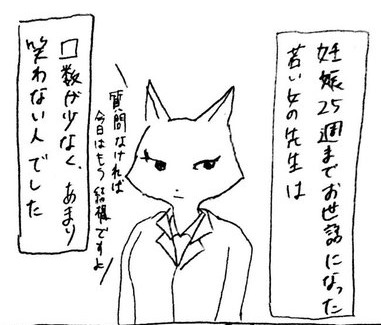 妊娠25週までお世話になった
若い女の先生は
質問なければ
今日はもう結構ですよ
口数が少なく、あまり
笑わない人でした